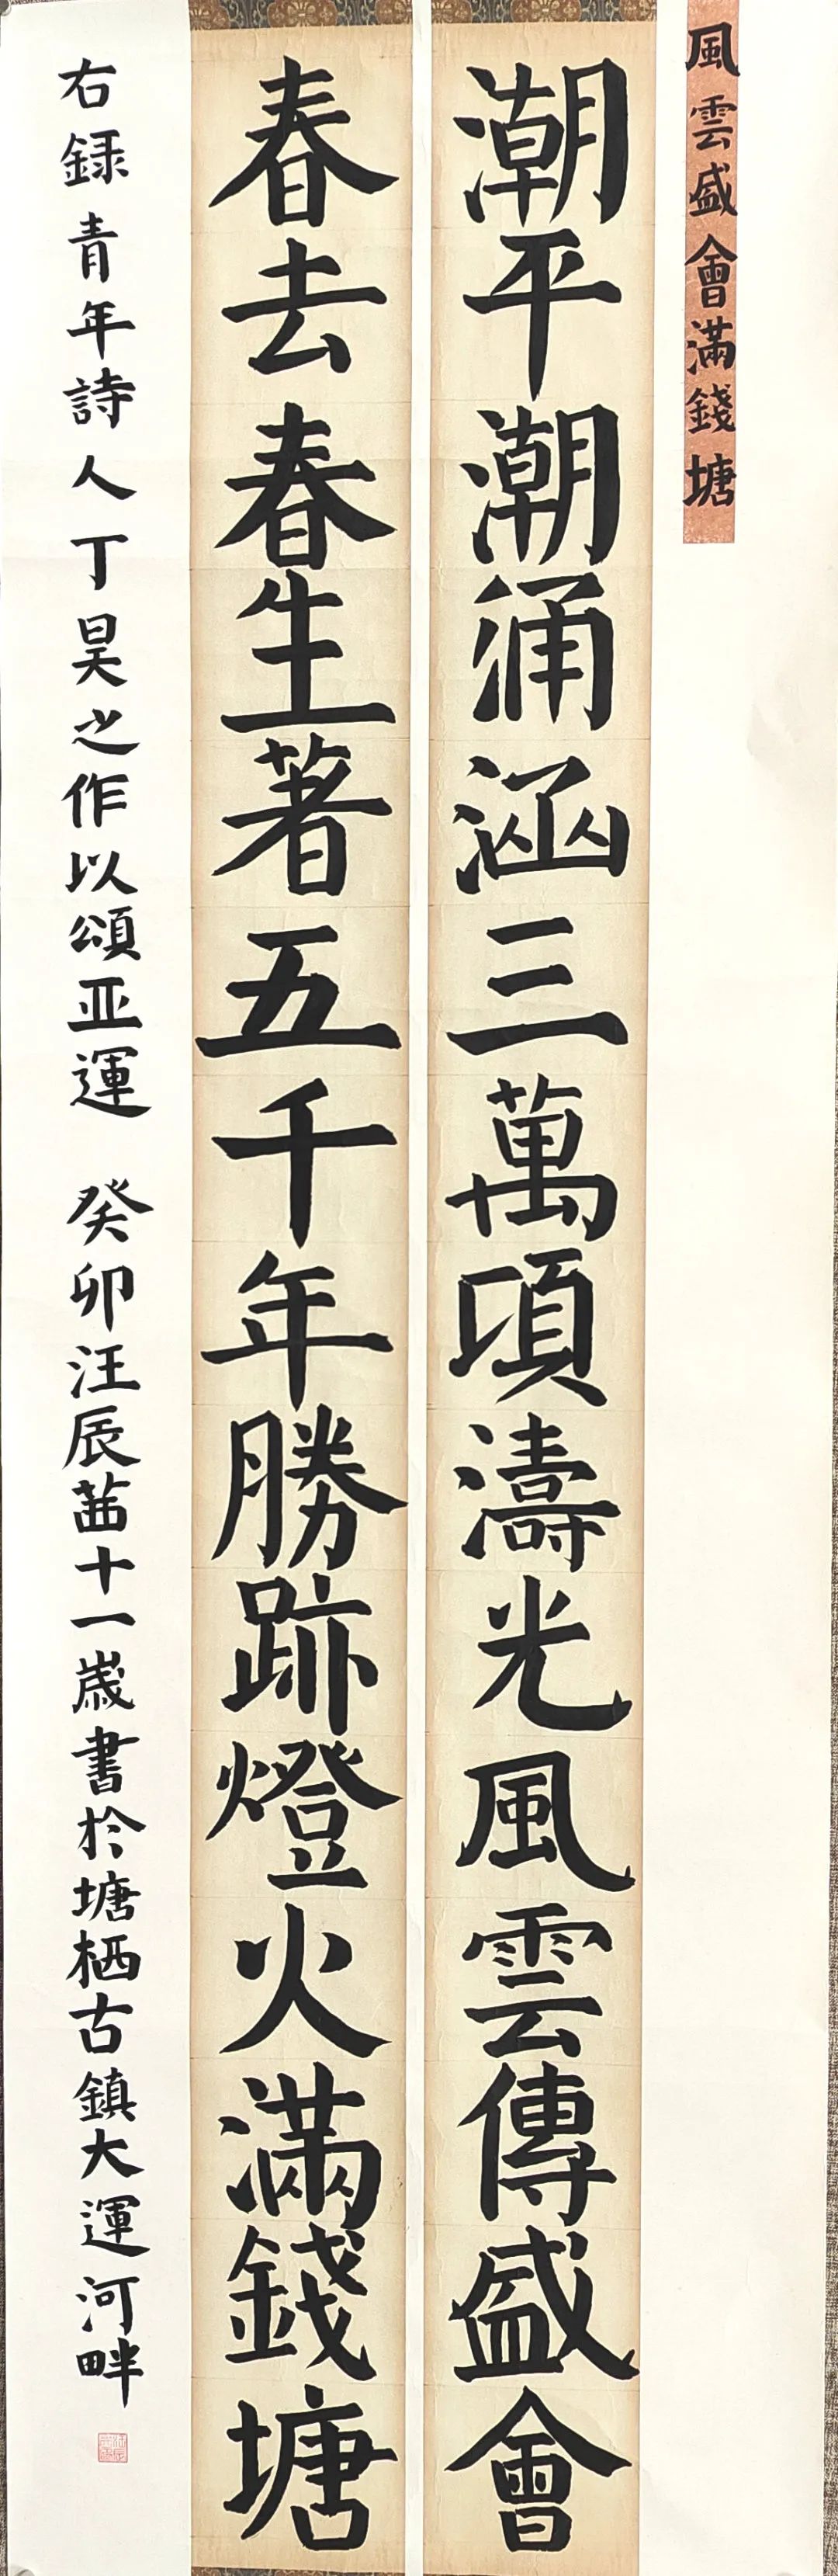 風雲盛會滿錢塘
潮平潮涌涵三萬頃濤光風雲傳盛會
春去春生著五千年勝跡燈火滿錢塘
右録青年詩人丁昊之作以頌亚運 癸卯汪辰茜十一歲書於塘栖古鎮大運河畔